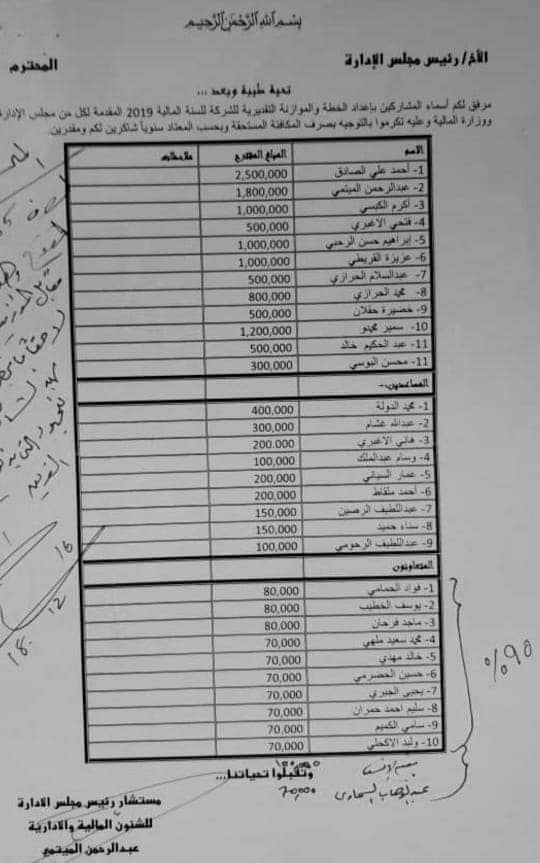 بسم الله الرحمن الرحيم
الأخ/ رئيس مجلس الإدارة المحترم
تحية طيبة وبعد ...
مرفق لكم أسماء المشاركين بإعداد الخطة والموازنة التقديرية للشركة للسنة المالية 2019 المقدمة لكل من مجلس الإدارة
ووزارة المالية وعليه تكرموا بالتوجيه بصرف المكافئة المستحقة وبحسب المعتاد سنوياً شاكرين لكم ومقدرين.
الاسم المبلغ المقترح ملاحظات
1- أحمد علي الصادق 2,500,000
2- عبدالرحمن الميتمي 1,800,000
3- أكرم الكبسي 1,000,000
4- فتحي الاغبري 500,000
5- إبراهيم حسن الرحبي 1,000,000
6- عزيزة القريطي 1,000,000
7- عبدالسلام الحرازي 500,000
8- محمد الحرازي 800,000
9- خضيرة حفلان 500,000
10- سمير محمدو 1,200,000
11- عبد الحكيم خالد 500,000
11- محسن البوسي 300,000
المساعدين:-
1- محمد الدولة 400,000
2- عبدالله غشام 300,000
3- هاني الاغبري 200.000
4- وسام عبدالملك 100,000
5- عمار السياني 200,000
6- أحمد ملقاط 200,000
7- عبداللطيف الرصين 150,000
8- سناء حميد 150,000
9- عبداللطيف الرحومي 100,000
المتعاونون
1- فواد الحمامي 80,000
2- يوسف الخطيب 80,000
3- ماجد فرحان 80,000
4- محمد سعيد ملهي 70,000
5- خالد مهدي 70,000
6- حسين الحضرمي 70,000
7- يحيى الجبري 70,000
8- سليم احمد حمران 70,000
9- سامي الكميم 70,000
10- وليد الاكحلي 70,000
100,000
عبدالوهاب السماوي 70,000
وتقبلوا تحياتنا...
مستشار رئيس مجلس الادارة
للشئون المالية والادارية
عبدالرحمن الميتمي